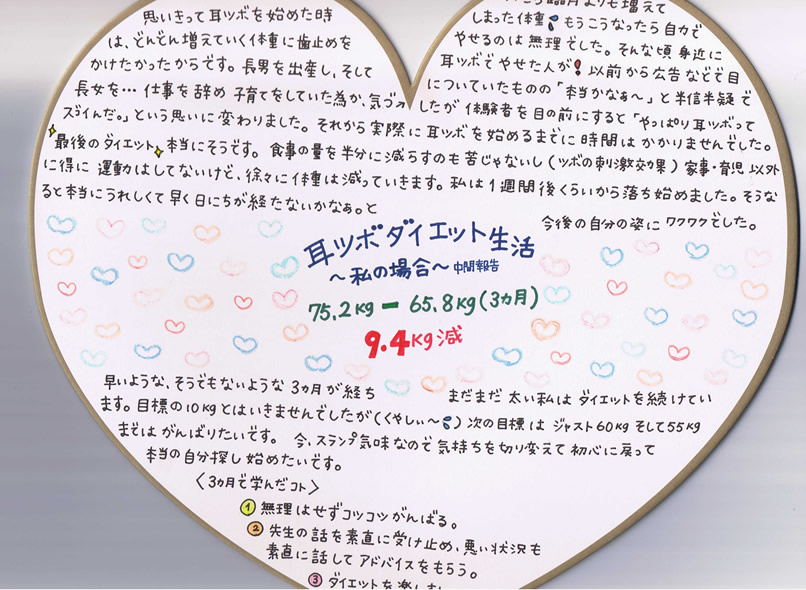 思いきって耳ツボを始めた時
は、どんどん増えていく体重に歯止めを
かけたかったからです。長男を出産し、そして
長女を… 仕事を辞め 子育てをしていた為か、気づ
よりも増えて
しまった体重 もうこうなったら自力で
やせるのは無理でした。そんな頃 身近に
耳ツボでやせた人が! 以前から広告などで目
についていたものの「本当かなぁ〜」と半信半疑で
したが 体験者を目の前にすると「やっぱり耳ツボって
スゴイんだ。」という思いに変わりました。それから実際に耳ツボを始めるまでに時間はかかりませんでした。
最後のダイエット 本当にそうです。食事の量を半分に減らすのも苦じゃないし(ツボの刺激効果)家事・育児以外
に得に 運動はしてないけど、徐々に体重は減っていきます。私は1週間後くらいから落ち始めました。そうな
ると本当にうれしくて早く日にちが経たないかなぁ。と
今後の自分の姿にワクワクでした。
耳ツボダイエット生活
〜私の場合〜 中間報告
75.2kg ー 65.8kg(3カ月)
9.4kg減
早いような、そうでもないような 3カ月が経ち まだまだ 太い私は ダイエットを続けてい
ます。目標の10kgとはいきませんでしたが(くやしぃ〜) 次の目標は ジャスト60kg そして55kg
まではがんばりたいです。 今、スランプ気味なので気持ちを切り変えて初心に戻って
本当の自分探し始めたいです。
〈3カ月で学んだコト〉
① 無理はせずコツコツがんばる。
② 先生の話を素直に受け止め、悪い状況も
素直に話してアドバイスをもらう。
③ ダイエットを楽し